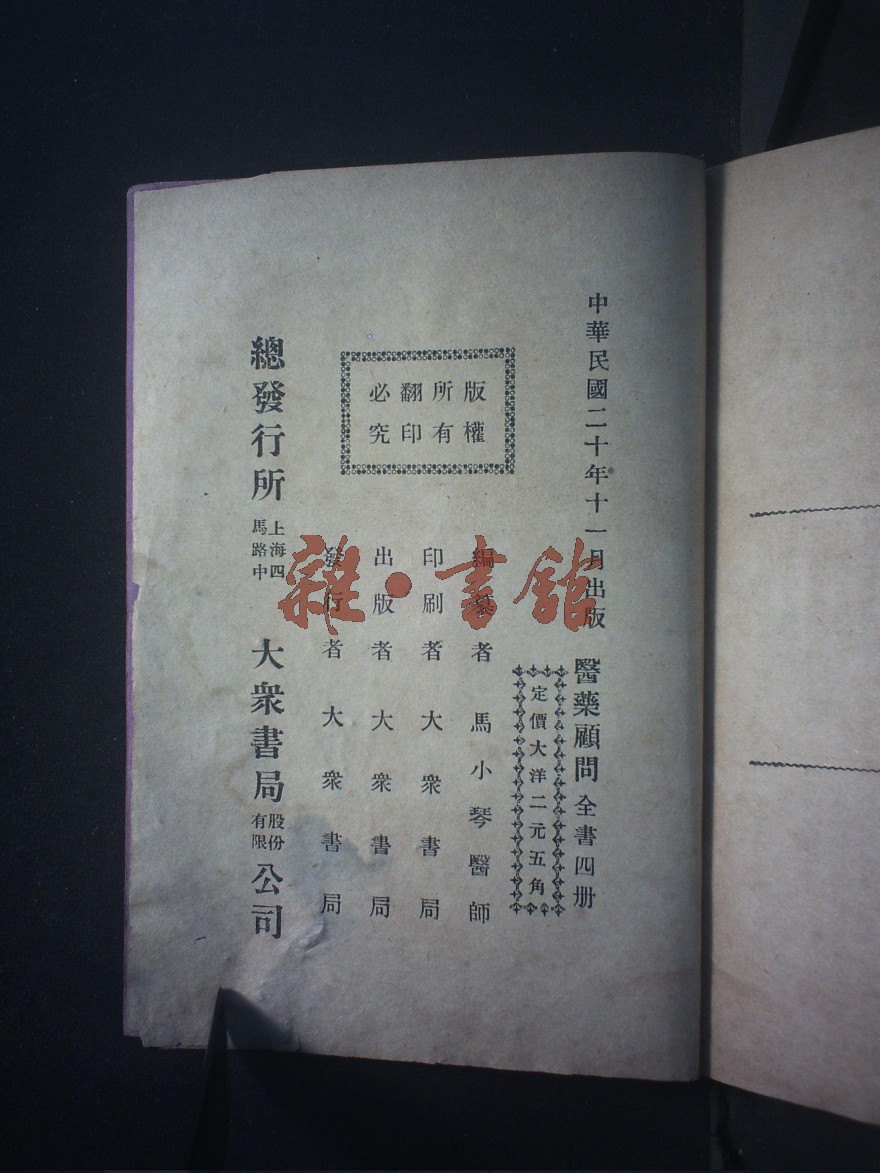 中華民國二十年十一月出版
醫藥顧問 全書四册
定價大洋二元五角
版權
所有
翻印
必究
編纂者 馬小琴醫師
印刷者 大衆書局
出版者 大衆書局
發行者 大衆書局
總發行所 上海四馬路中 大衆書局股份有限公司
雜·書館